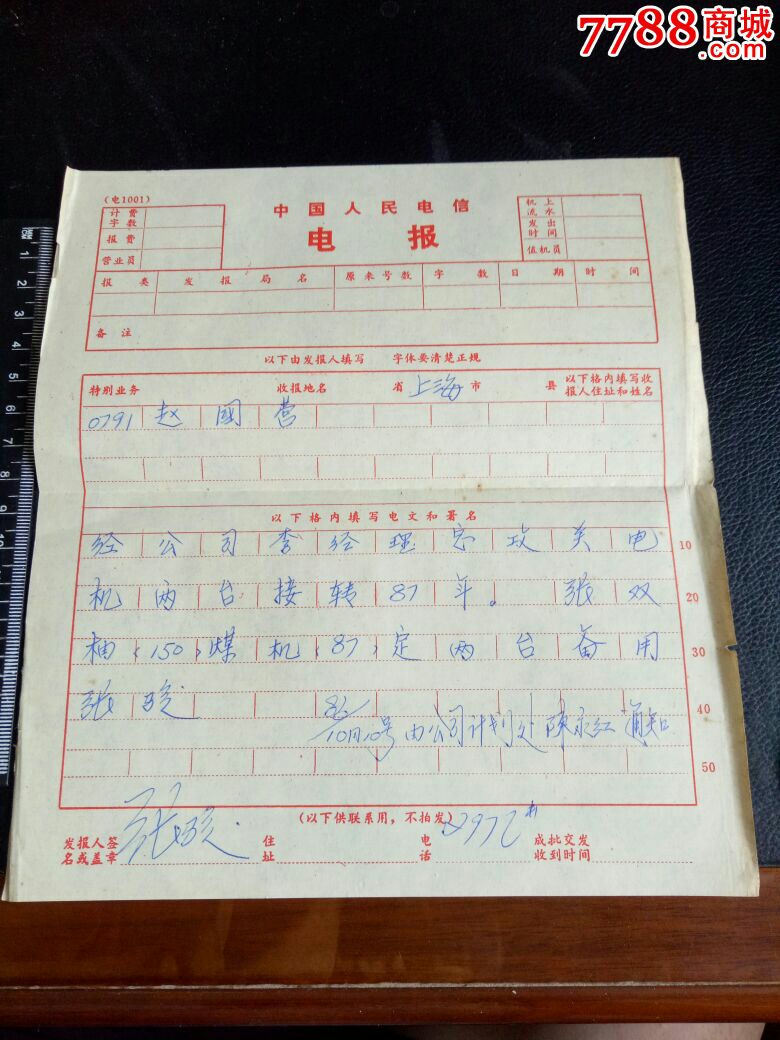 7788商城
.com
(电1001)
中国人民电信
电报
计费字数
报费
营业员
机上流水
发出时间
值机员
报类 发报局名 原来号数 字数 日期 时间
备注
以下由发报人填写 字体要清楚正规
特别业务 收报地名 省 上海 市 县 以下格内填写收报人住址和姓名
0791 赵 國 营
以下格内填写电文和署名
经 公 司 李 经 理 总 攻 关 电 10
机 两 台 接 转 87 年。 张 双 20
柚 (150) 煤 机 (87) 定 两 台 备 用 30
张 骏 40
86/10月10号 由公司计划处陈永红通知
50
(以下供联系用，不拍发)
发报人签名或盖章 张骏 住址 电话 成批交发收到时间